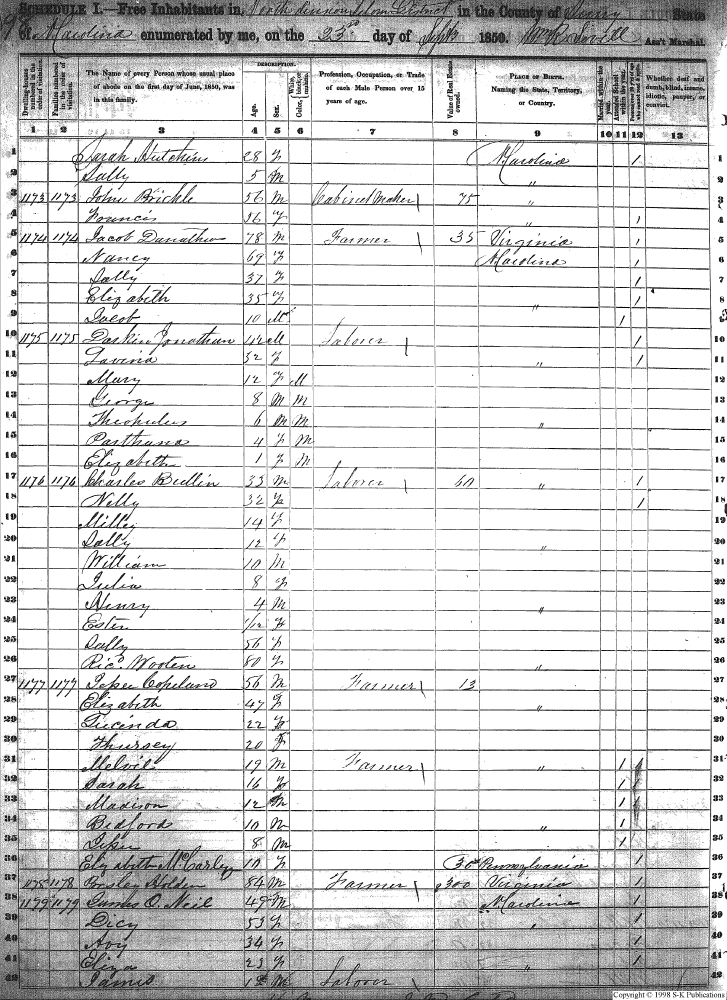 SCHEDULE I.—Free Inhabitants in North division Salem District in the County of Surry State
of N Carolina enumerated by me, on the 23d day of Sept 1850. Ass't Marshal.
Dwelling-houses numbered in the order of visitation.
Families numbered in the order of visitation.
The Name of every Person whose usual place of abode on the first day of June, 1850, was in this family.
DESCRIPTION.
Age.
Sex.
White, black, or mulatto.
Color,
Profession, Occupation, or Trade of each Male Person over 15 years of age.
Value of Real Estate owned.
PLACE OF BIRTH. Naming the State, Territory, or Country.
Married within the year.
Attended School within the year.
Whether deaf and dumb, blind, insane, idiotic, pauper, or convict.
1 2 3 4 5 6 7 8 9 10 11 12 13
1 Sarah Hutchins 28 F N Carolina / 1
2 Sally 5 M " 2
3 1173 1173 John Brickle 56 M Cabinet Maker / 75 " 3
4 Francis 56 F " / 4
5 1174 1174 Jacob 78 M Farmer / 35 Virginia / 5
6 Nancy 69 F N Carolina / 6
7 Sally 37 F / 7
8 Elizabeth 35 F " / 8
9 Jacob 10 M /
10 1175 1175 Jonathan 42 M Laborer / / 10
11 Lavina 32 F " / 11
12 Mary 12 F M 12
13 George 8 M M 13
14 Theophilus 6 M M " 14
15 Parthana 4 F M 15
16 Elizabeth 1 F M 16
17 1176 1176 Charles Bullin 33 M Laborer / 60 " / 17
18 Nelly 32 F / 18
19 Milley 14 F 19
20 Sally 12 F " 20
21 William 10 M 21
22 Julia 8 F 22
23 Henry 4 M " 23
24 Ester 1/12 F 24
25 Sally 56 F 25
26 Wooten 80 F " 26
27 1177 1177 Copeland 56 M Farmer / 13 27
28 Elizabeth 47 F " 28
29 Lucinda 22 F 29
30 Thursey 20 F 30
31 Melvil 19 M Farmer / " / / 31
32 Sarah 16 F / / 32
33 Madison 12 M / / 33
34 Bedford 10 M " / / 34
35 8 M / 35
36 Elizabeth McCarley 10 F 30 Pennsylvania / 36
37 1178 1178 Holder 54 M Farmer / 300 Virginia / 37
38 1179 1179 James O. Neil 49 M N Carolina / 38
39 Dicy 53 F / 39
40 Avy 34 F " / 40
41 Eliza 23 F " / 41
42 James 18 M Laborer 42
Copyright © 1998 S-K Publications